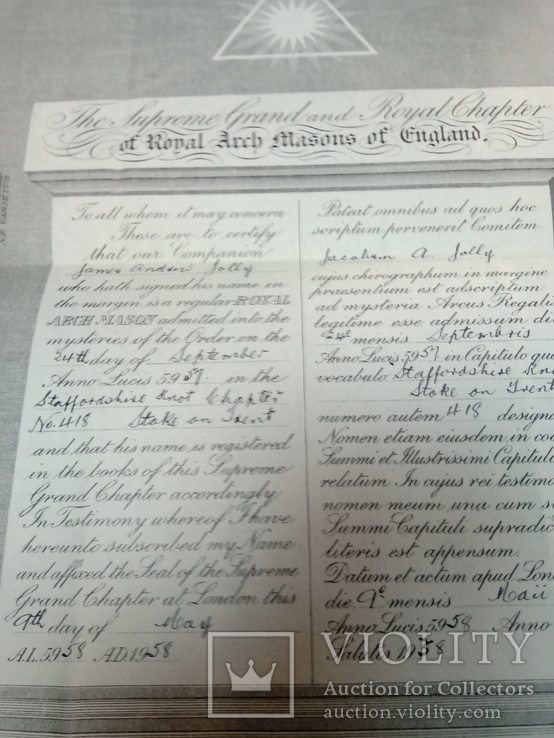 The Supreme Grand and Royal Chapter
of Royal Arch Masons of England.
To all whom it may concern
These are to certify
that our Companion
James Andrew Jolly
who hath signed his name in
the margin is a regular ROYAL
ARCH MASON admitted into the
mysteries of the Order on the
24th day of September
Anno Lucis 5957 in the
Staffordshire Knot Chapter
No. 418 Stoke on Trent
and that his name is registered
in the books of this Supreme
Grand Chapter accordingly
In Testimony whereof I have
hereunto subscribed my Name
and affixed the Seal of the Supreme
Grand Chapter at London this
9th day of May
A.L. 5958 A.D. 1958
Pateat omnibus ad quos hoc
scriptum pervenerit Comitem
Jacobum A. Jolly
cujus chirographum in margine
praesentium est adscriptum
ad mysteria Arcus Regali
legitime esse admissum di
24º mensis Septembris
Anno Lucis 5957 in Capitulo quo
vocabulo Staffordshire Kno
Stoke on Trent
numero autem 418 design
Nomen etiam ejusdem in co
Summi et Illustrissimi Capitul
relatum. In cujus rei testimo
nomen meum una cum s
Summi Capituli supradic
literis est appensum.
Datum et actum apud Lon
die 9º mensis Maii
Anno Lucis 5958 Anno
Salutis 1958
VIOLITY
Auction for Collectors
auction.violity.com